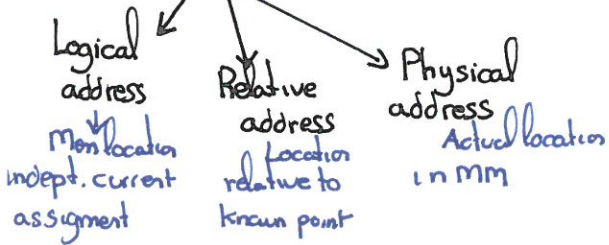 Logical
address
Mem location
indept. current
assigment
Relative
address
Location
relative to
known point
Physical
address
Actual location
in MM